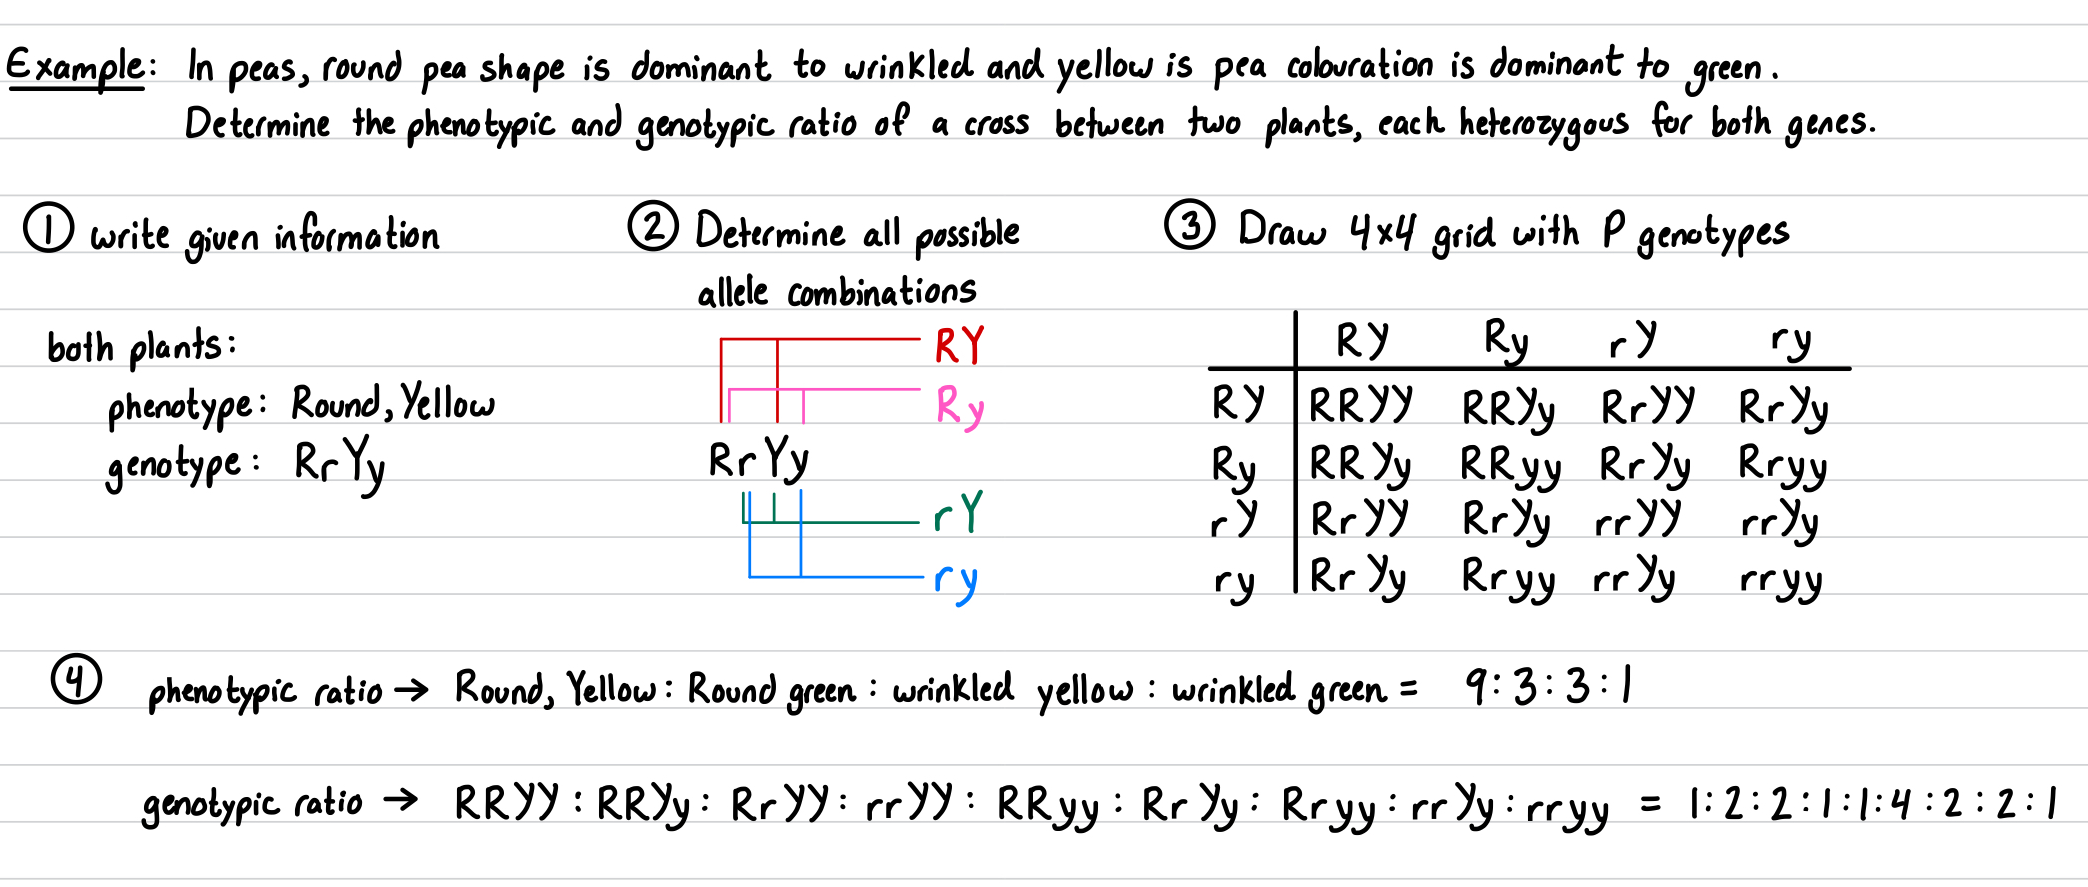 Example: In peas, round pea shape is dominant to wrinkled and yellow is pea colouration is dominant to green.
Determine the phenotypic and genotypic ratio of a cross between two plants, each heterozygous for both genes.
① write given information
both plants:
phenotype: Round, Yellow
genotype: RrYy
② Determine all possible
allele combinations
RY
Ry
RrYy
rY
ry
③ Draw 4x4 grid with P genotypes
RY Ry rY ry
RY RRYY RRYy RrYY RrYy
Ry RRYy RRyy RrYy Rryy
rY RrYY RrYy rrYY rrYy
ry RrYy Rryy rrYy rryy
④ phenotypic ratio → Round, Yellow : Round green : wrinkled yellow : wrinkled green = 9:3:3:1
genotypic ratio → RRYY : RRYy : RrYY : rrYY : RRyy : RrYy : Rryy : rrYy : rryy = 1:2:2:1:1:4:2:2:1